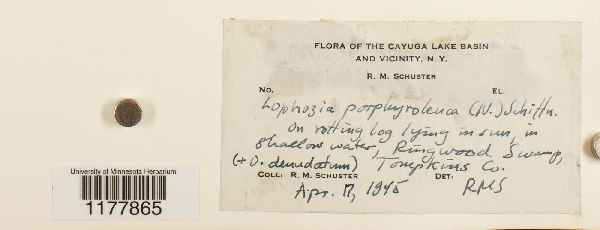 FLORA OF THE CAYUGA LAKE BASIN
AND VICINITY, N. Y.
R. M. SCHUSTER
No. EL.
Lophozia porphyroleuca (N.) Schiffn.
On rotting log lying in sun, in
shallow water, Ringwood Swamp,
(+ O. denudatum) Tompkins Co.
COLL: R. M. SCHUSTER DET: RMS
Apr. 17, 1945
University of Minnesota Herbarium
1177865